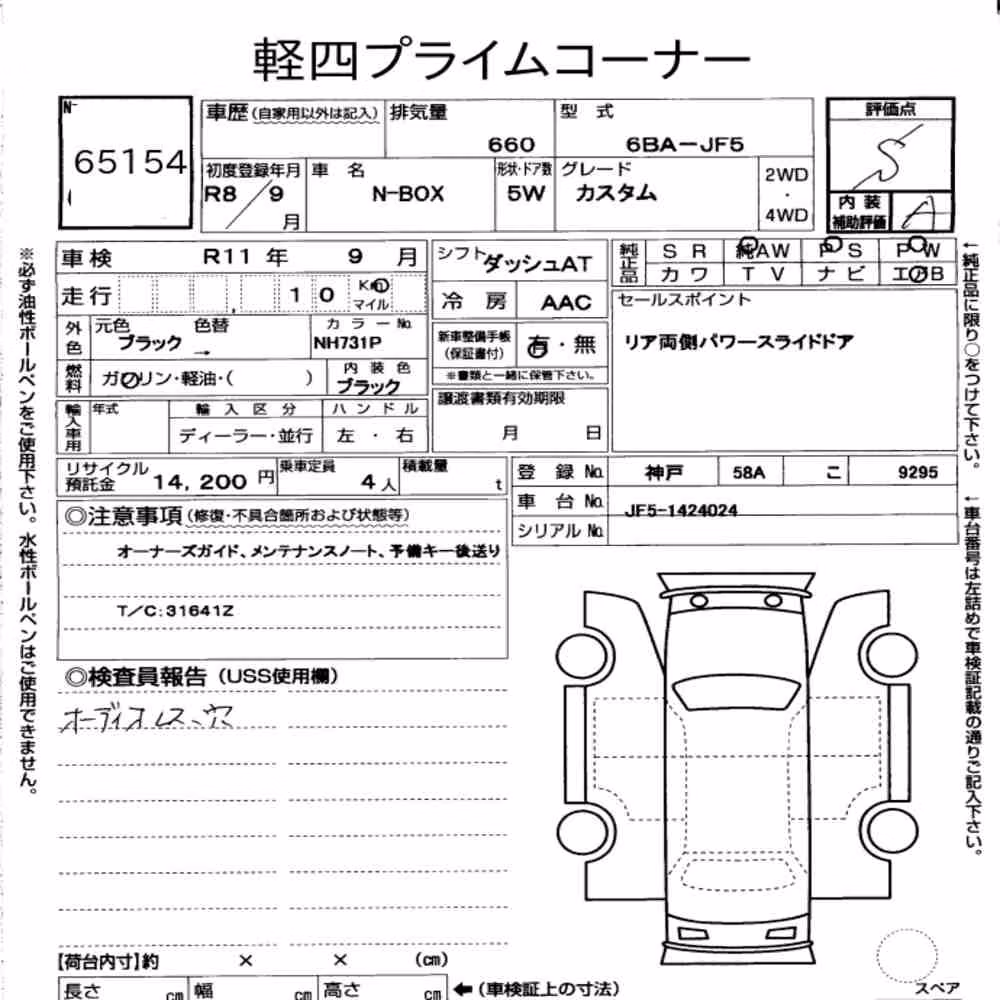 軽四プライムコーナー
N-
65154
車歴(自家用以外は記入) 排気量 660 型 式 6BA-JF5
初度登録年月 R8/9月 車 名 N-BOX 形状・ドア数 5W グレード カスタム 2WD・4WD
評価点 S
内装補助評価 A
車検 R11 年 9 月
走行 10 Km マイル
外色 元色 ブラック 色替 → カラーNo. NH731P
燃料 ガソリン・軽油・( ) 内装色 ブラック
輸入車用 年式 輸入区分 ディーラー・並行 ハンドル 左・右
シフト ダッシュAT
冷 房 AAC
新車整備手帳(保証書付) 有・無
※書類と一緒に保管下さい。
譲渡書類有効期限
月 日
純正品 SR 純AW PS PW
カワ TV ナビ エアB
セールスポイント
リア両側パワースライドドア
リサイクル預託金 14,200 円 乗車定員 4人 積載量 t
登 録 No. 神戸 58A こ 9295
車 台 No. JF5-1424024
シリアル No.
◎注意事項(修復・不具合箇所および状態等)
オーナーズガイド、メンテナンスノート、予備キー後送り
T/C:31641Z
◎検査員報告(USS使用欄)
オーディオレス、穴
【荷台内寸】約 × × (cm)
長さ cm 幅 cm 高さ cm ←(車検証上の寸法)
スペア
※必ず油性ボールペンをご使用下さい。水性ボールペンはご使用できません。
←純正品に限り○をつけて下さい。
←車台番号は左詰めで車検証記載の通りご記入下さい。